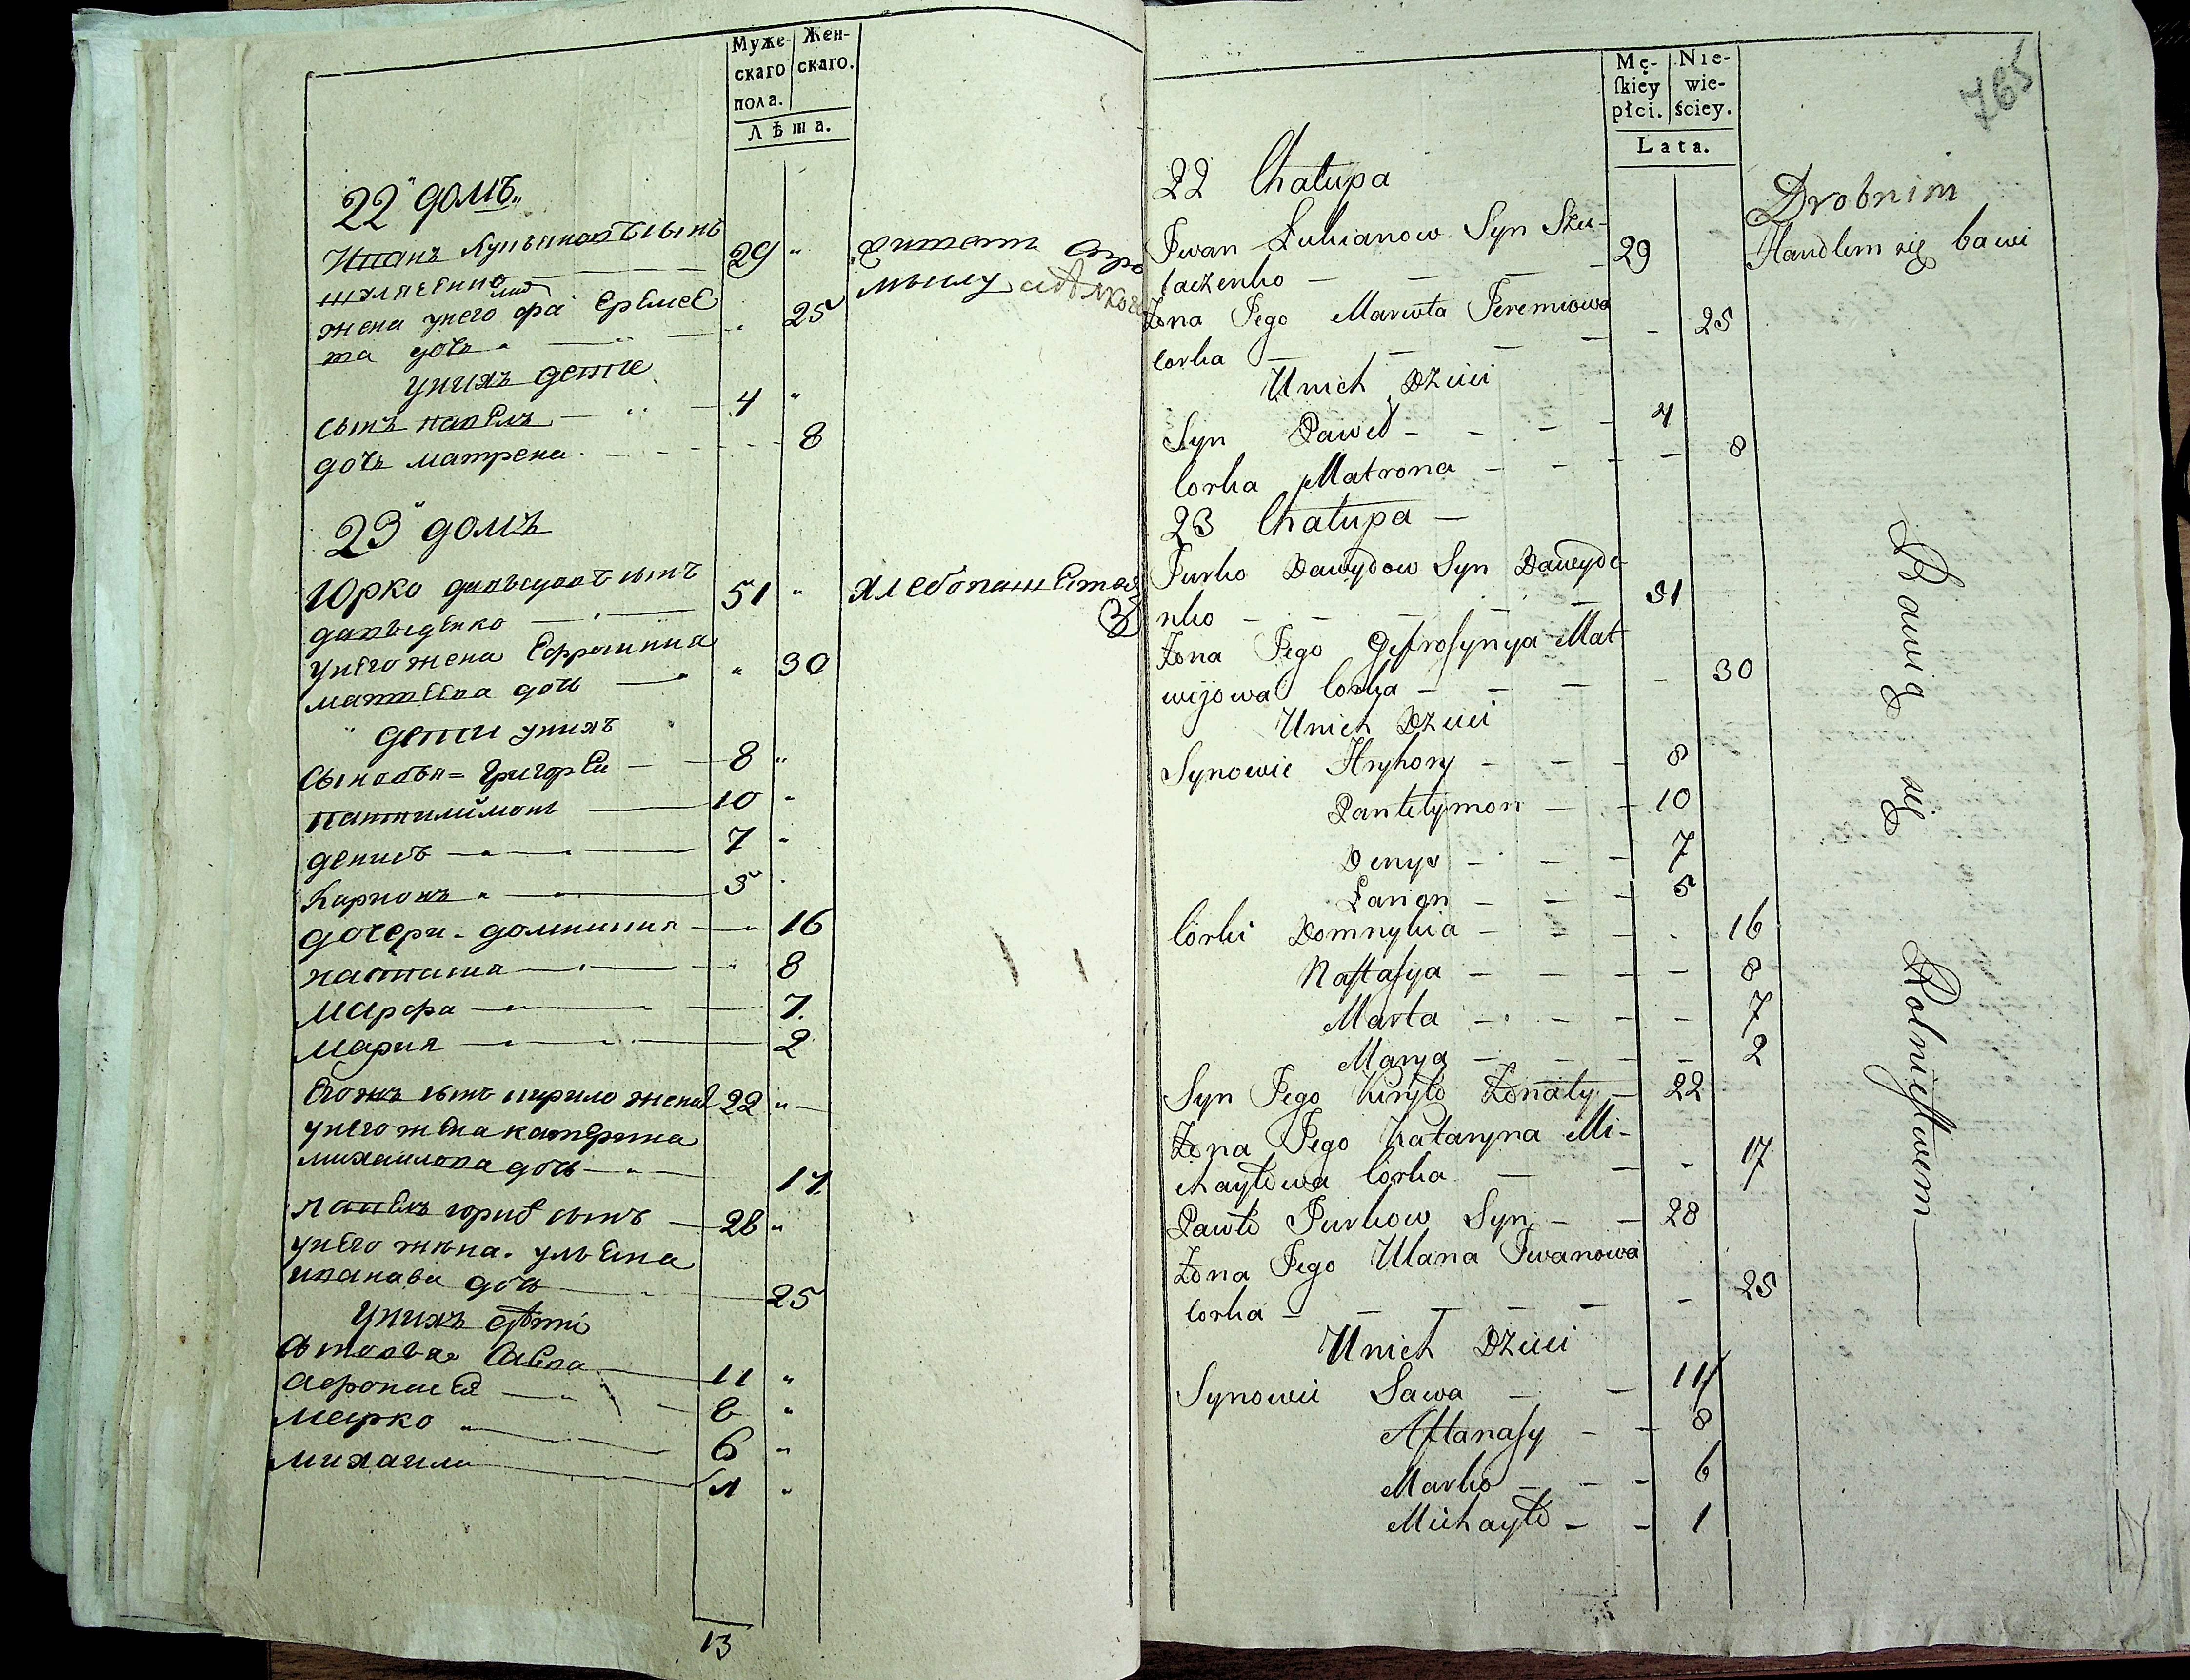 Муже- Жен-
скаго скаго.
пола.
Лѣта.
22 домъ
Иванъ Лукьяновъ сынъ
29
жена у него Ереме
ва дочь 25
у нихъ дети
сынъ павелъ 4
дочь матрена 8
23 домъ
Юрко давыдовъ сынъ
давыденко 51 хлебопашеством
у него жена Ефросиния
матвеева дочь 30
дети у нихъ
Сыновья = Григореи 8
пантилимонъ 10
денисъ 7
Ларионъ 5
дочери домникия 16
настасия 8
Марфа 7
Мария 2
Егожъ сынъ кирило женат 22
у него жена катерина
михаилова дочь 17
павелъ юрковъ сынъ 28
у него жена ульяна
иванова дочь 25
у нихъ дѣти
сыновья Савва 11
Афонасей 8
Марко 6
михаило 1
13
Mę- Nie-
ſkiey wie-
płci. ściey.
Lata.
765
22 Chałupa
Iwan Łukianow Syn Szu-
laczenko 29
Drobnim
Handlem się bawi
Żona Jego Marwta Jeremiowa
Corka 25
U nich Dzieci
Syn Paweł 4
Corka Matrona 8
23 Chałupa
Jurko Dawydow Syn Dawyde-
nko 51
Żona Jego Jefroſynya Mat
wijowa Corka 30
U nich Dzieci
Synowie Hryhory 8
Pantelymon 10
Denys 7
Larion 5
Córki Domnykia 16
Naſtaſya 8
Marta 7
Marya 2
Syn Jego Kiryło Żonaty 22
Żona Jego Kataryna Mi-
chayłowa Córka 17
Pawło Jurkow Syn 28
Żona Jego Ulana Iwanowa
Corka 25
U nich Dzieci
Synowie Sawa 11
Aftanaſy 8
Marko 6
Michayło 1
Bawią się Rolnictwem